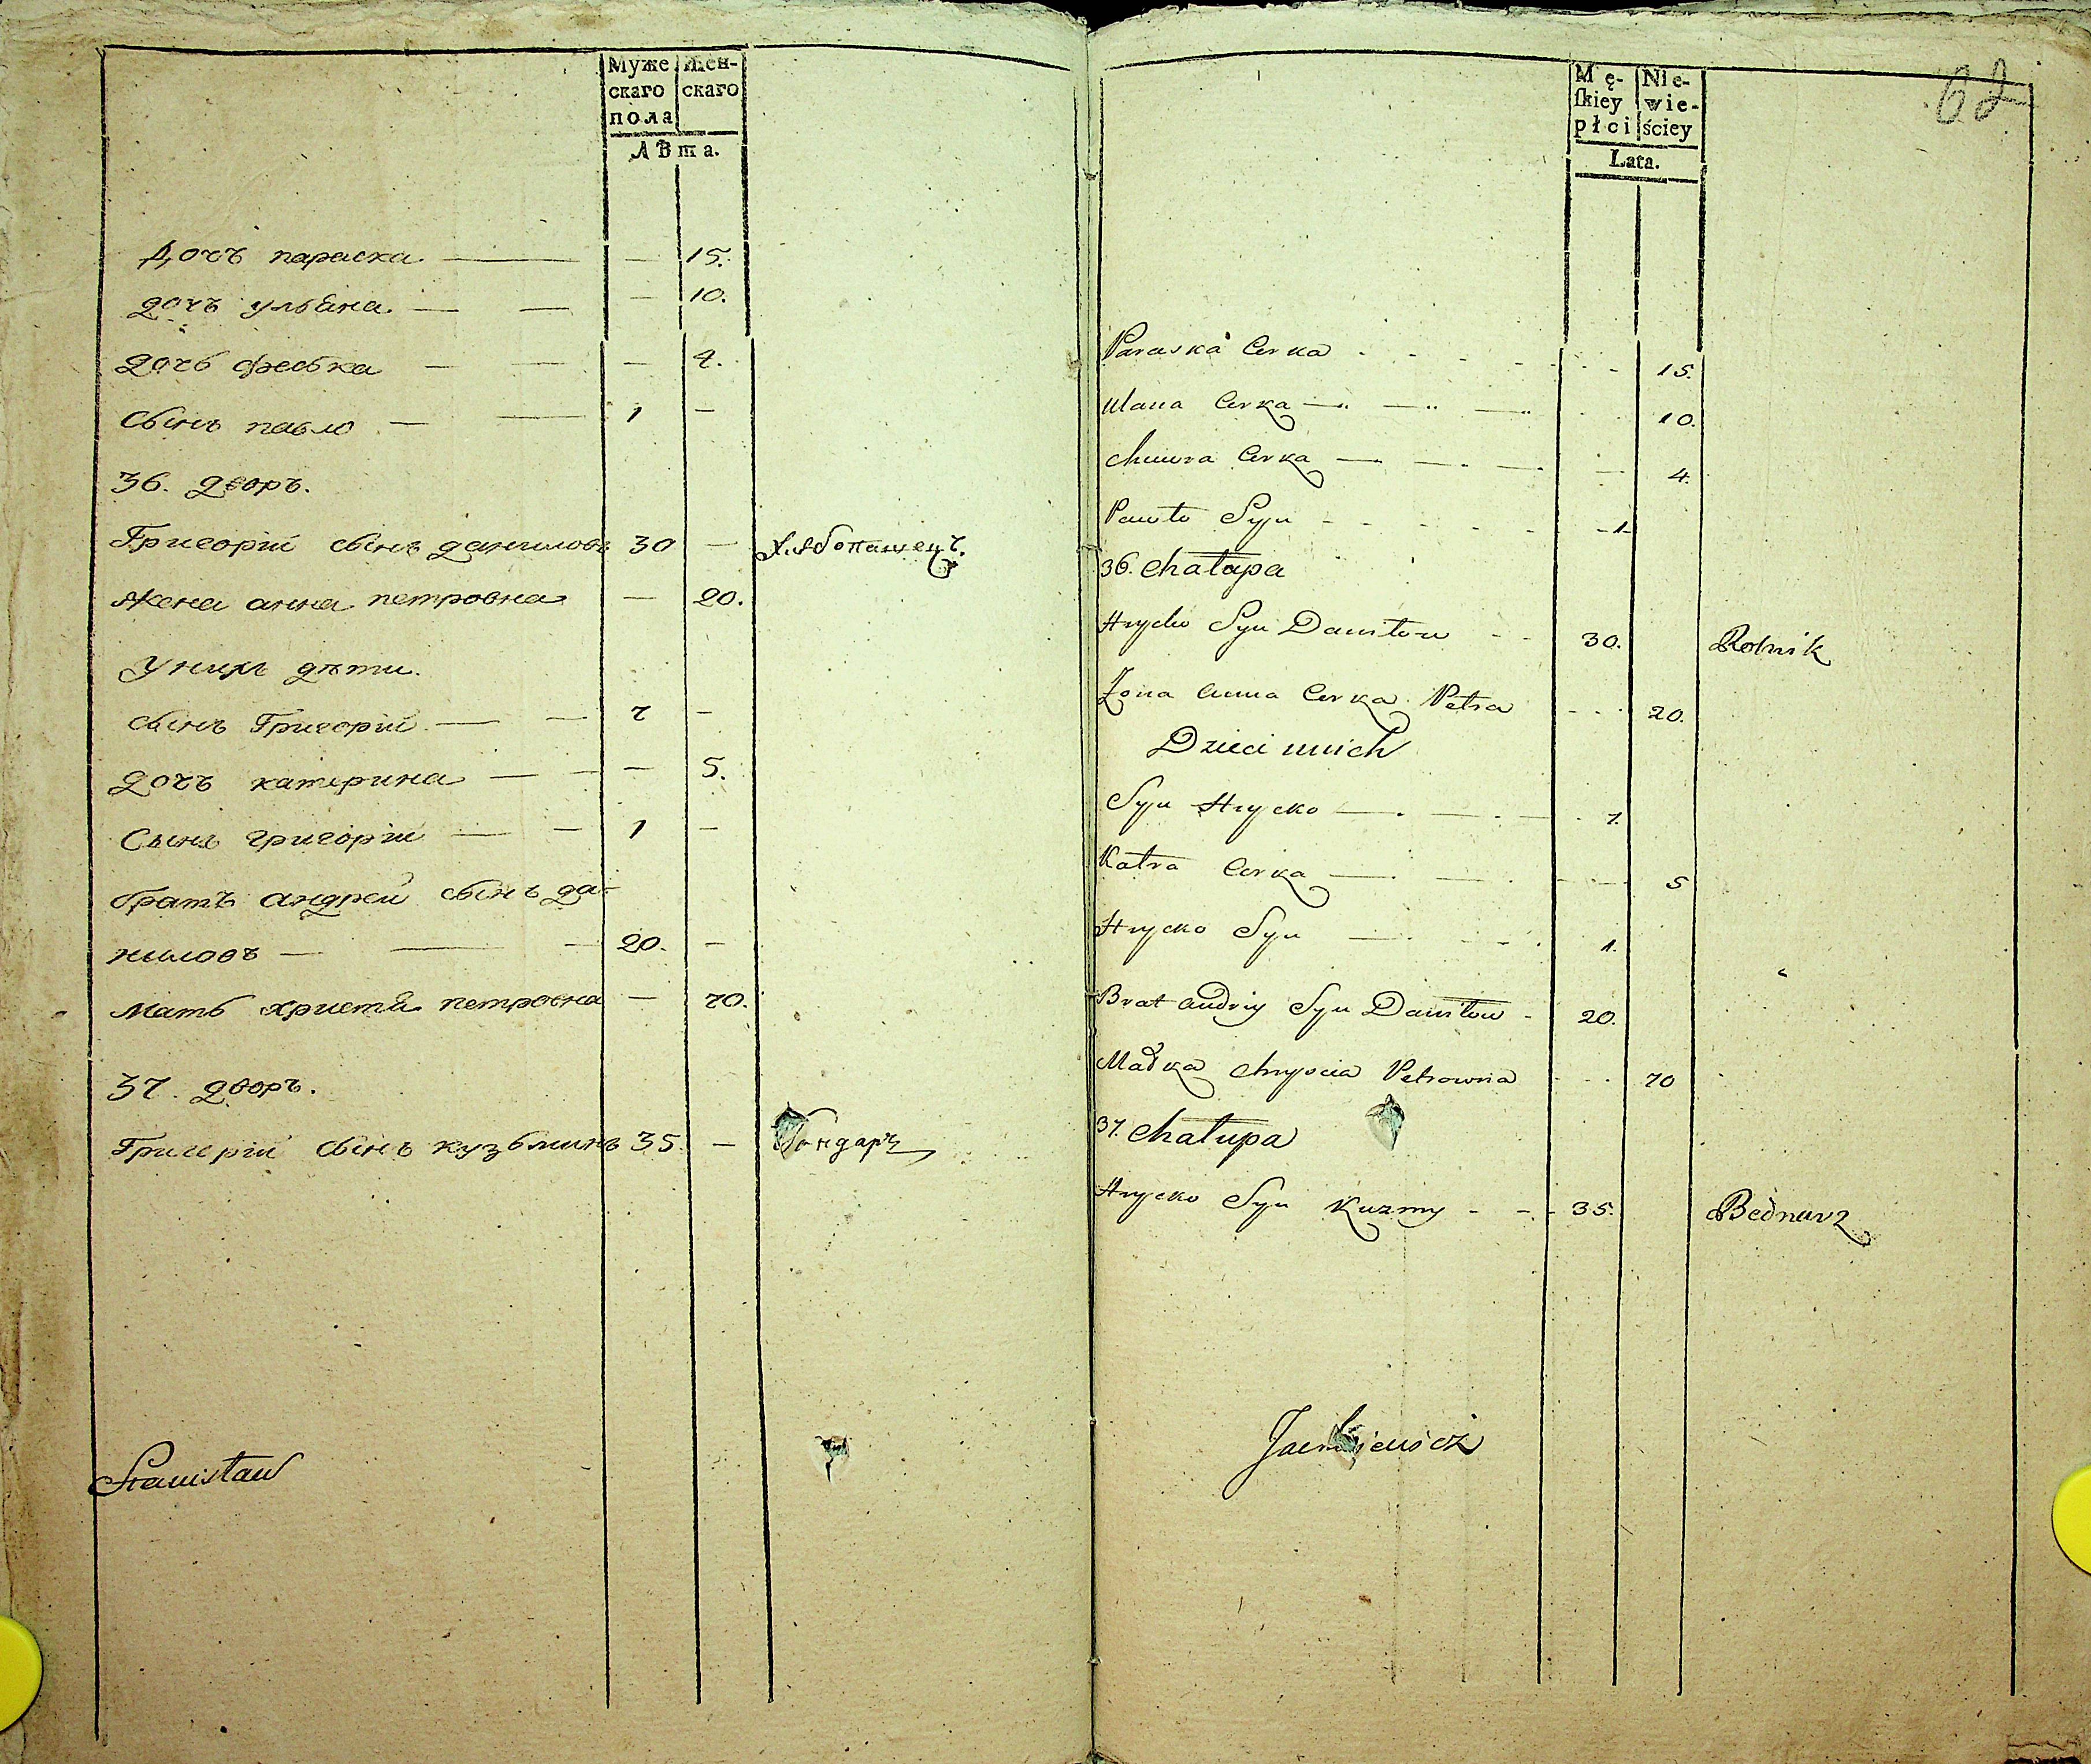 Муже
скаго
пола
жен-
скаго
лѣта.
Дочъ параска — — 15.
дочъ ульяна — — — 10.
дочь февка — — — 4.
сынъ павло — — 1 —
36. дворъ.
Григорій сынъ даниловъ 30 — Хлѣбопашецъ.
жена анна петровна — 20.
у нихъ дѣти.
сынъ Григорій — — 7 —
дочъ катерина — — — 5.
Сынъ григорій — — 1 —
братъ андрей сынъ да-
ниловъ — — — 20. —
мать христя петровна — 70.
37. дворъ.
Григорій сынъ кузьминъ 35. — Бондаръ
Stanisław
62
Mę-
ſkiey
płci
Nie-
wie-
ściey
Lata.
Paraska Corka 15.
Ulana Corka 10.
Corka 4.
Pawło Syn 1
36. Chałupa
Hrycko Syn Daniłow 30. Rolnik
Zona Anna Corka Petra 20.
Dzieci unich
Syn Hrycko 7.
Katra Corka 5
Hrycko Syn 1.
Brat Andriy Syn Daniłow 20.
Matka Chrycia Petrowna 70
37. Chałupa
Hrycko Syn Kuzmy 35. Bednarz